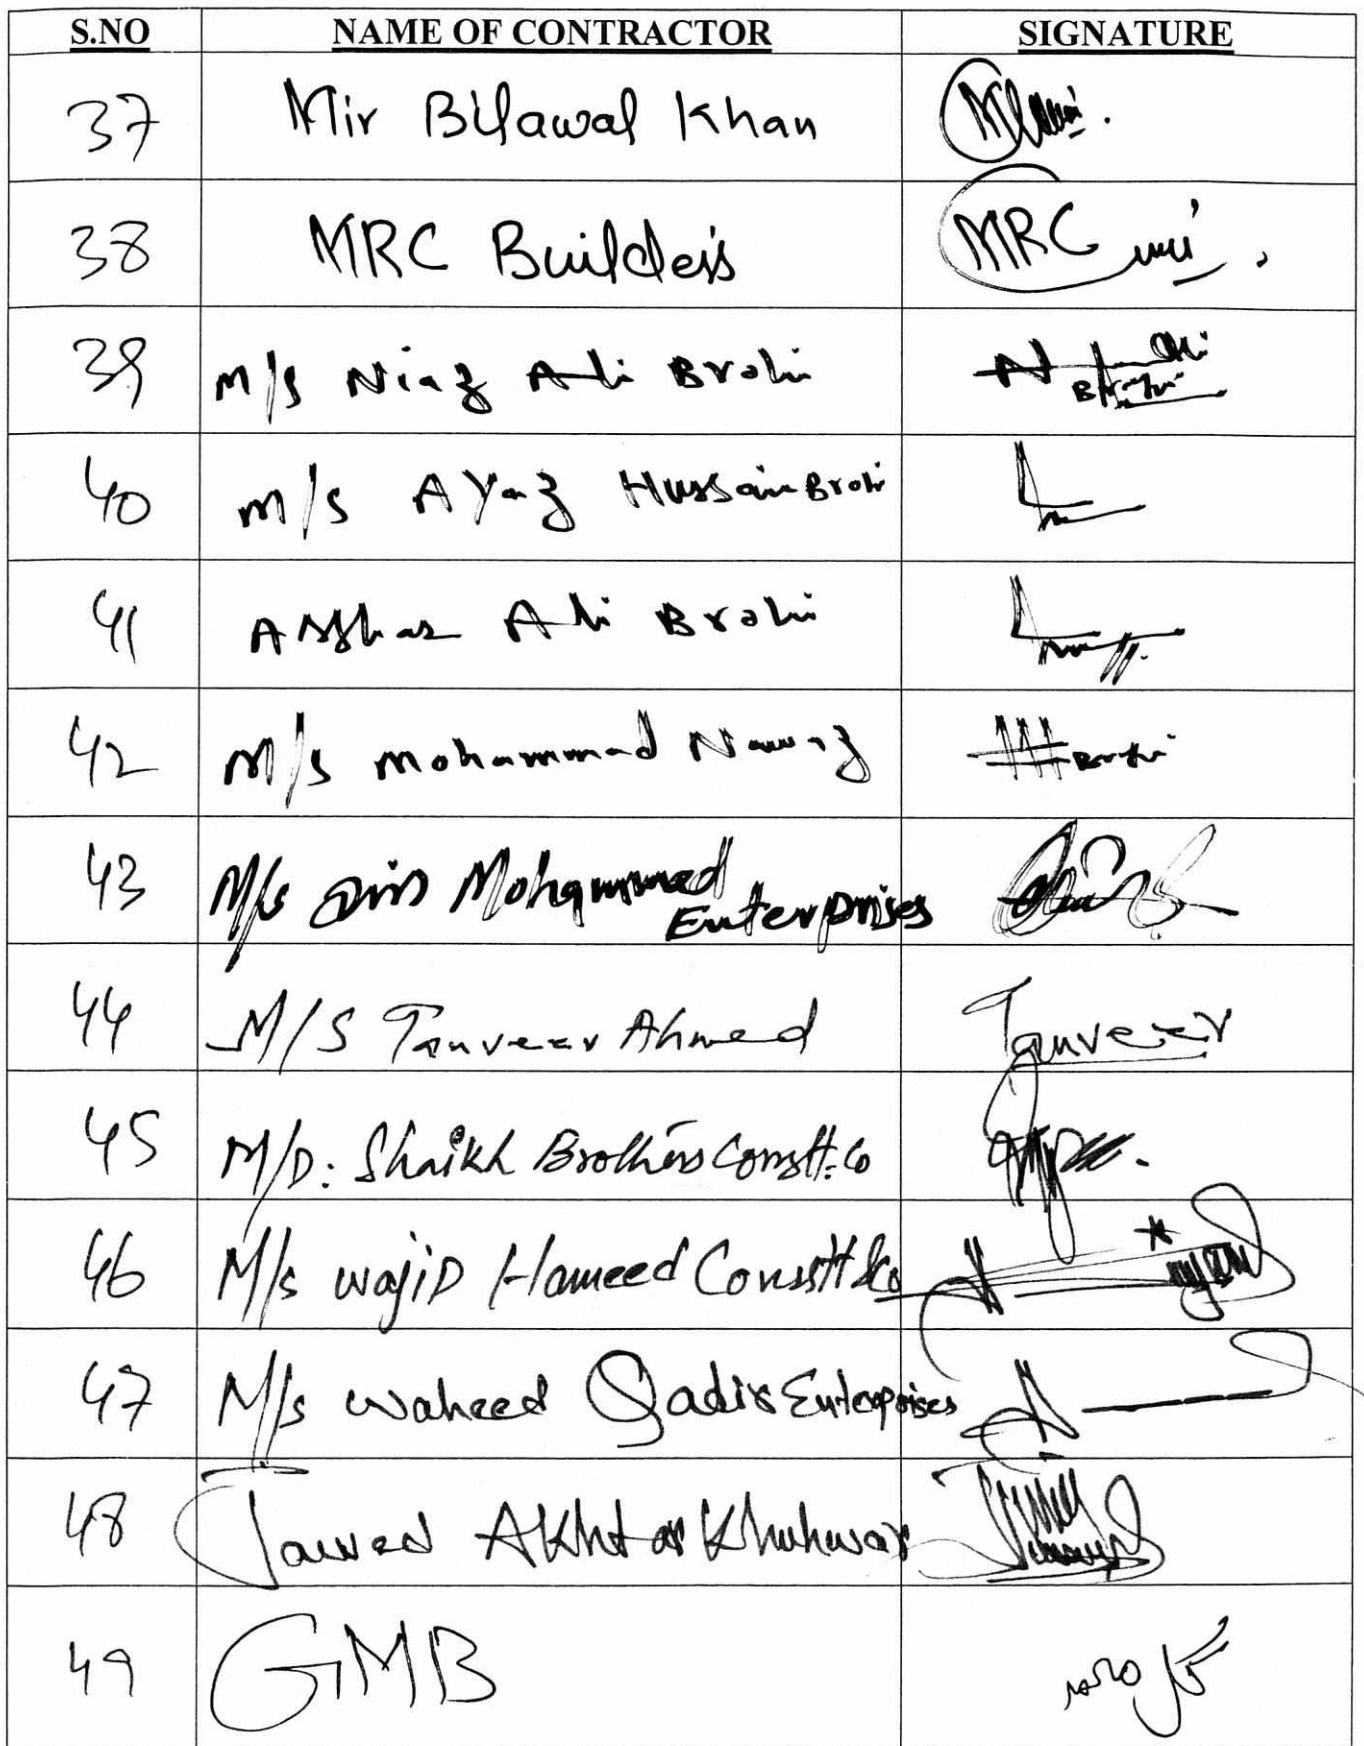 S.NO NAME OF CONTRACTOR SIGNATURE
37 Mir Bilawal Khan
38 MRC Builders MRC
39 M/S Niaz Ali Brohi Brohi
40 M/S Ayaz Hussain Brohi
41 Asghar Ali Brohi
42 M/S Mohammad Nawaz Brohi
43 M/s Mohammad
Enterprises
44 M/S Tanveer Ahmed Tanveer
45 M/D: Shaikh Brothers Constt: Co
46 M/s wajiD Hameed Consstt &co
47 M/s waheed Qadir Enterprises
48 Jawed AKhtar Khuhwar
49 GMB